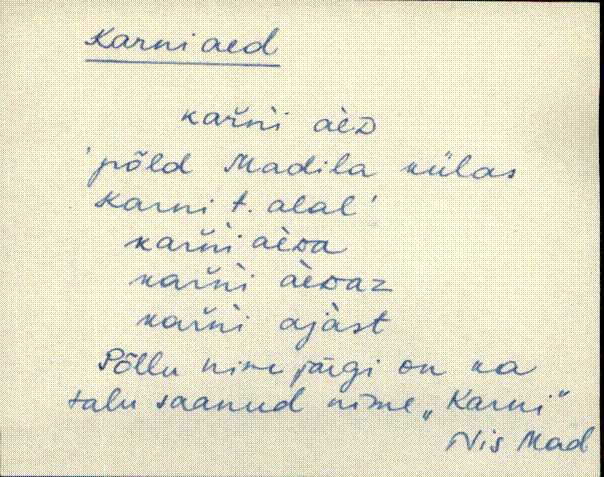 Karni aed
kařǹi àèD
'põld Madila külas
Karni t. alal'
kařǹi àèDa
kařǹi àèDaz
kařǹi ajàst
Põllu nime järgi on ka
talu saanud nime „Karni"
Nis Mad